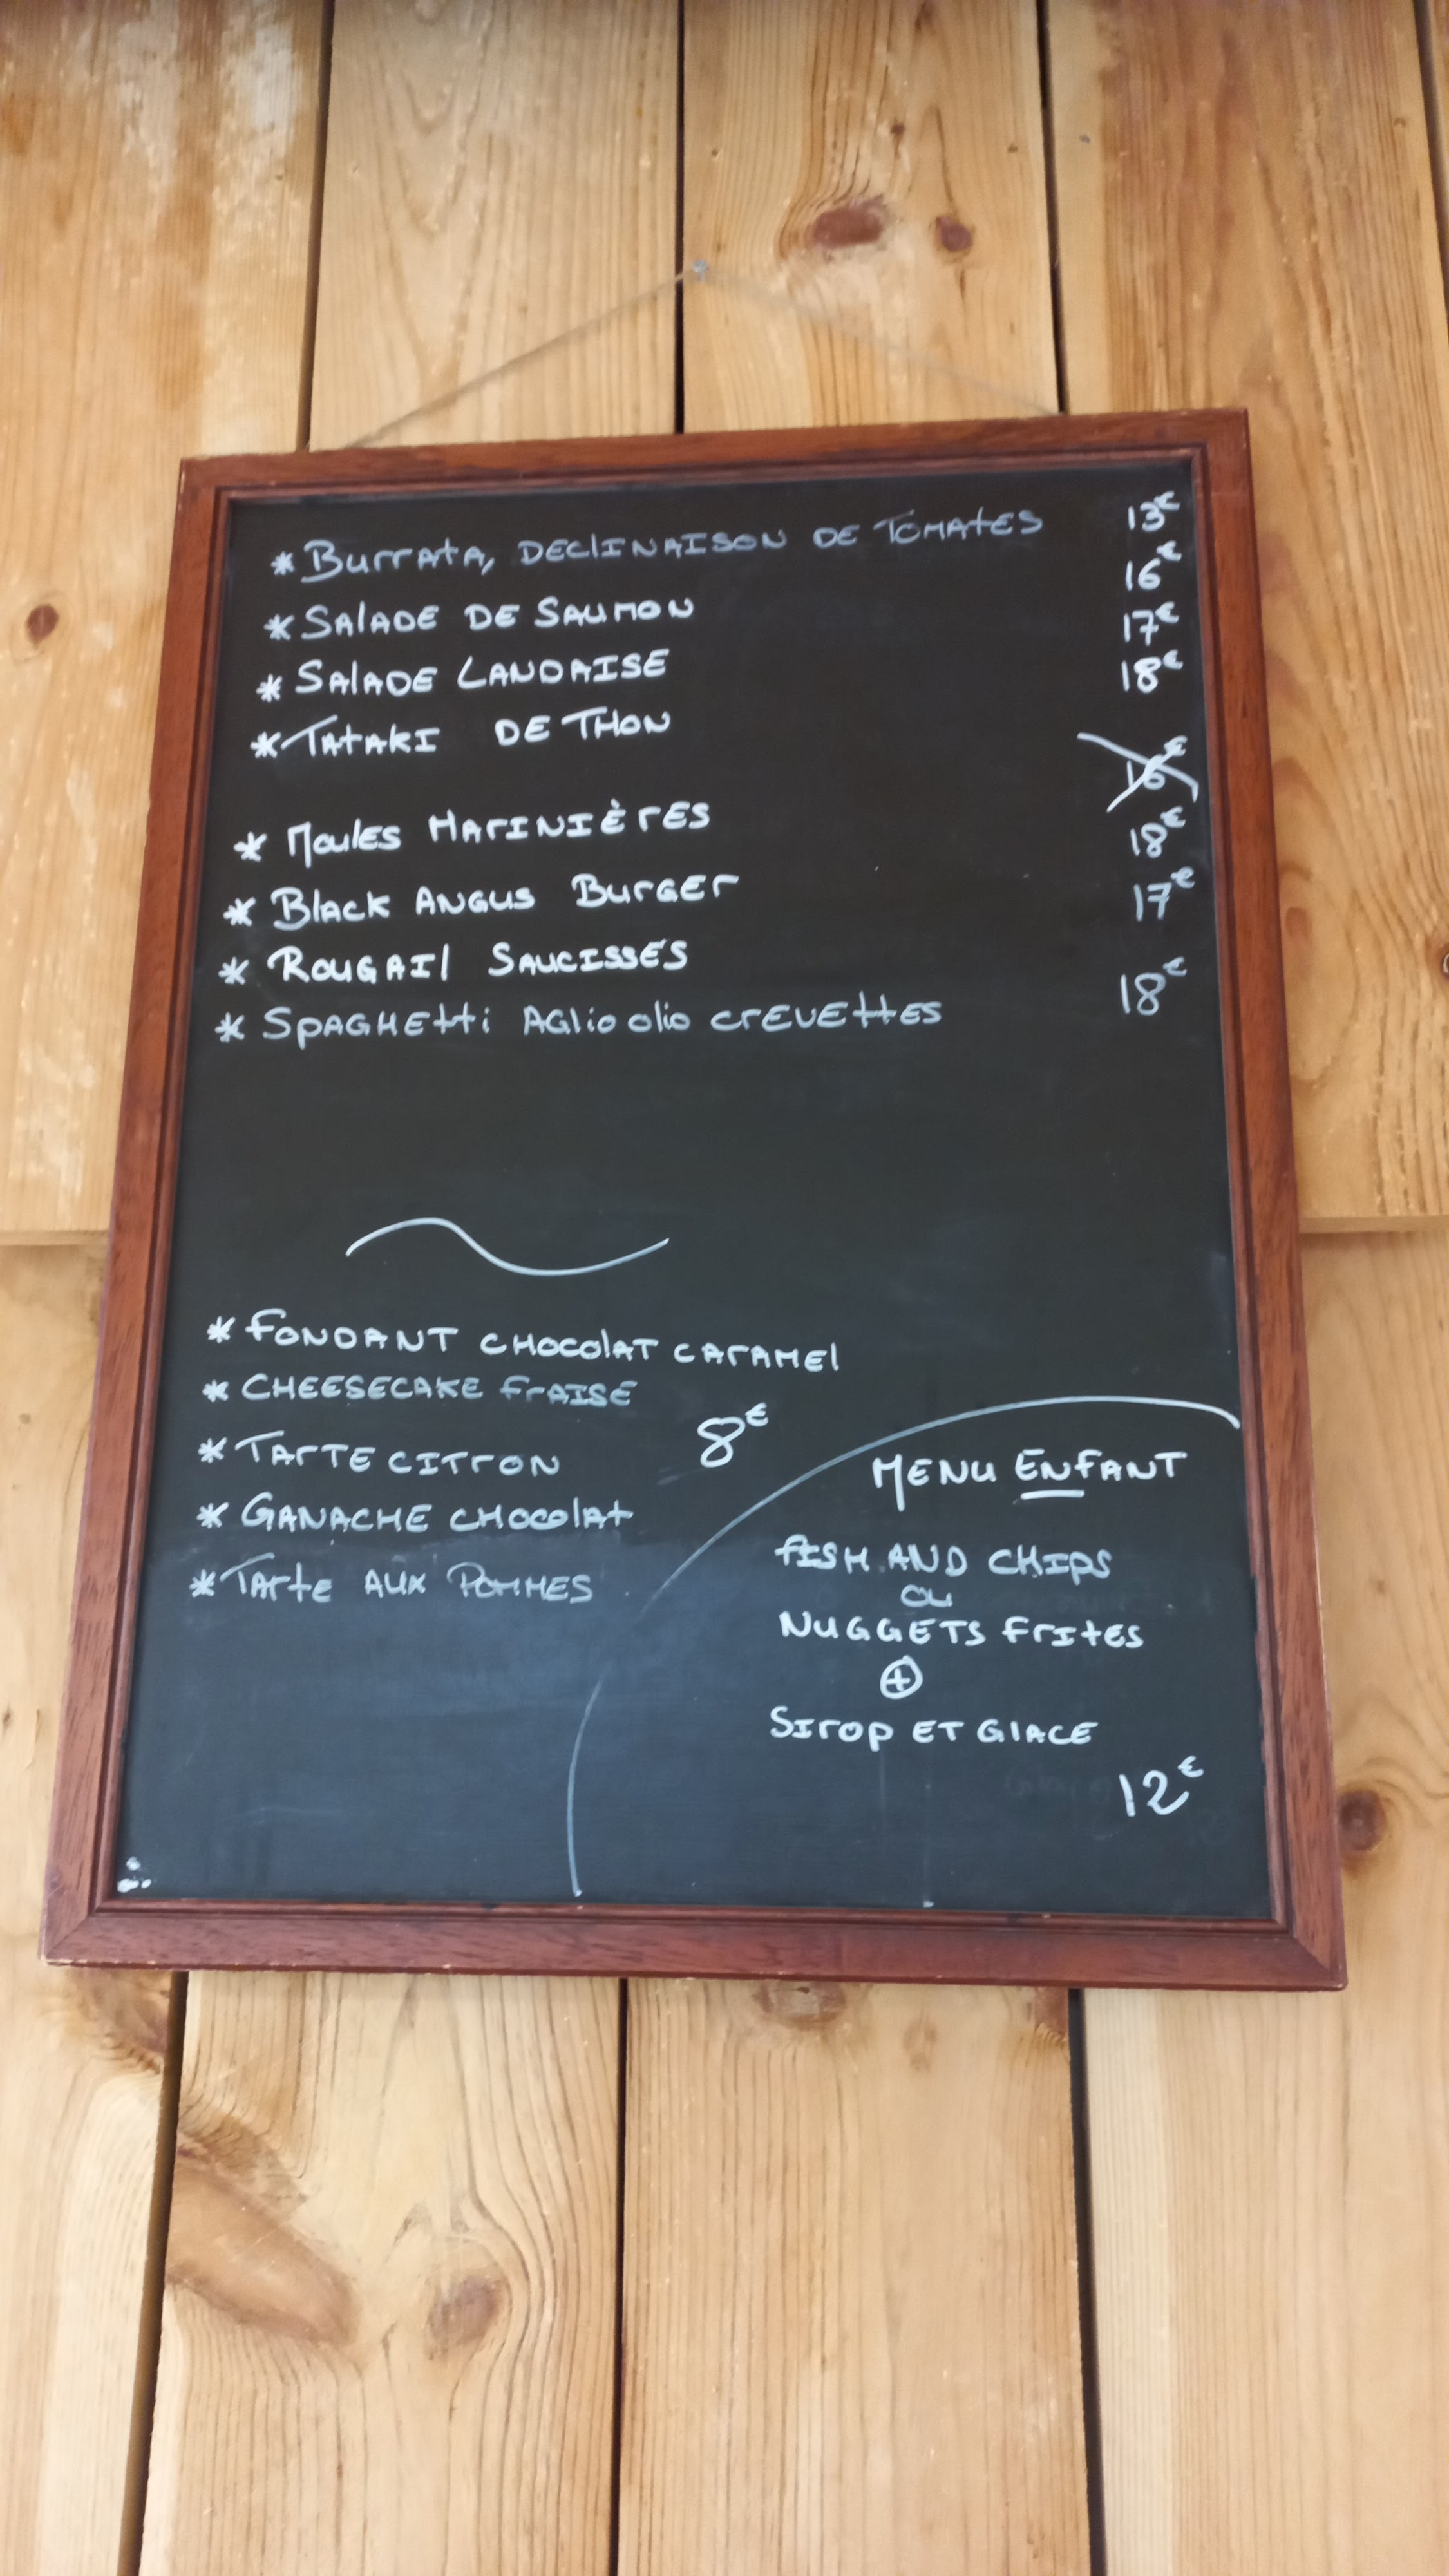 * Burrata, DEClINAISON DE TOMATES 13€
* SAlADE DE SAUMON 16€
* SAlADE LANDAISE 17€
* TATAKI DE THON 18€
* Moules MARINIÈRES 16€
* Black ANGUS BurGER 18€
* ROUGAIl SAUCISSES 17€
* SPAGHEtti AGlio olio CREVEttES 18€
* FONDANT CHOColAT CARAMEl
* CHEESECAKE FRAISE
8€
* TARTE CITRON
* GANACHE CHOColAt
* TARTE AUX POMMES
MENU ENFANT
FISH AND CHIPS
OU
NUGGETS FRITES
+
SIROP ET GlACE
12€